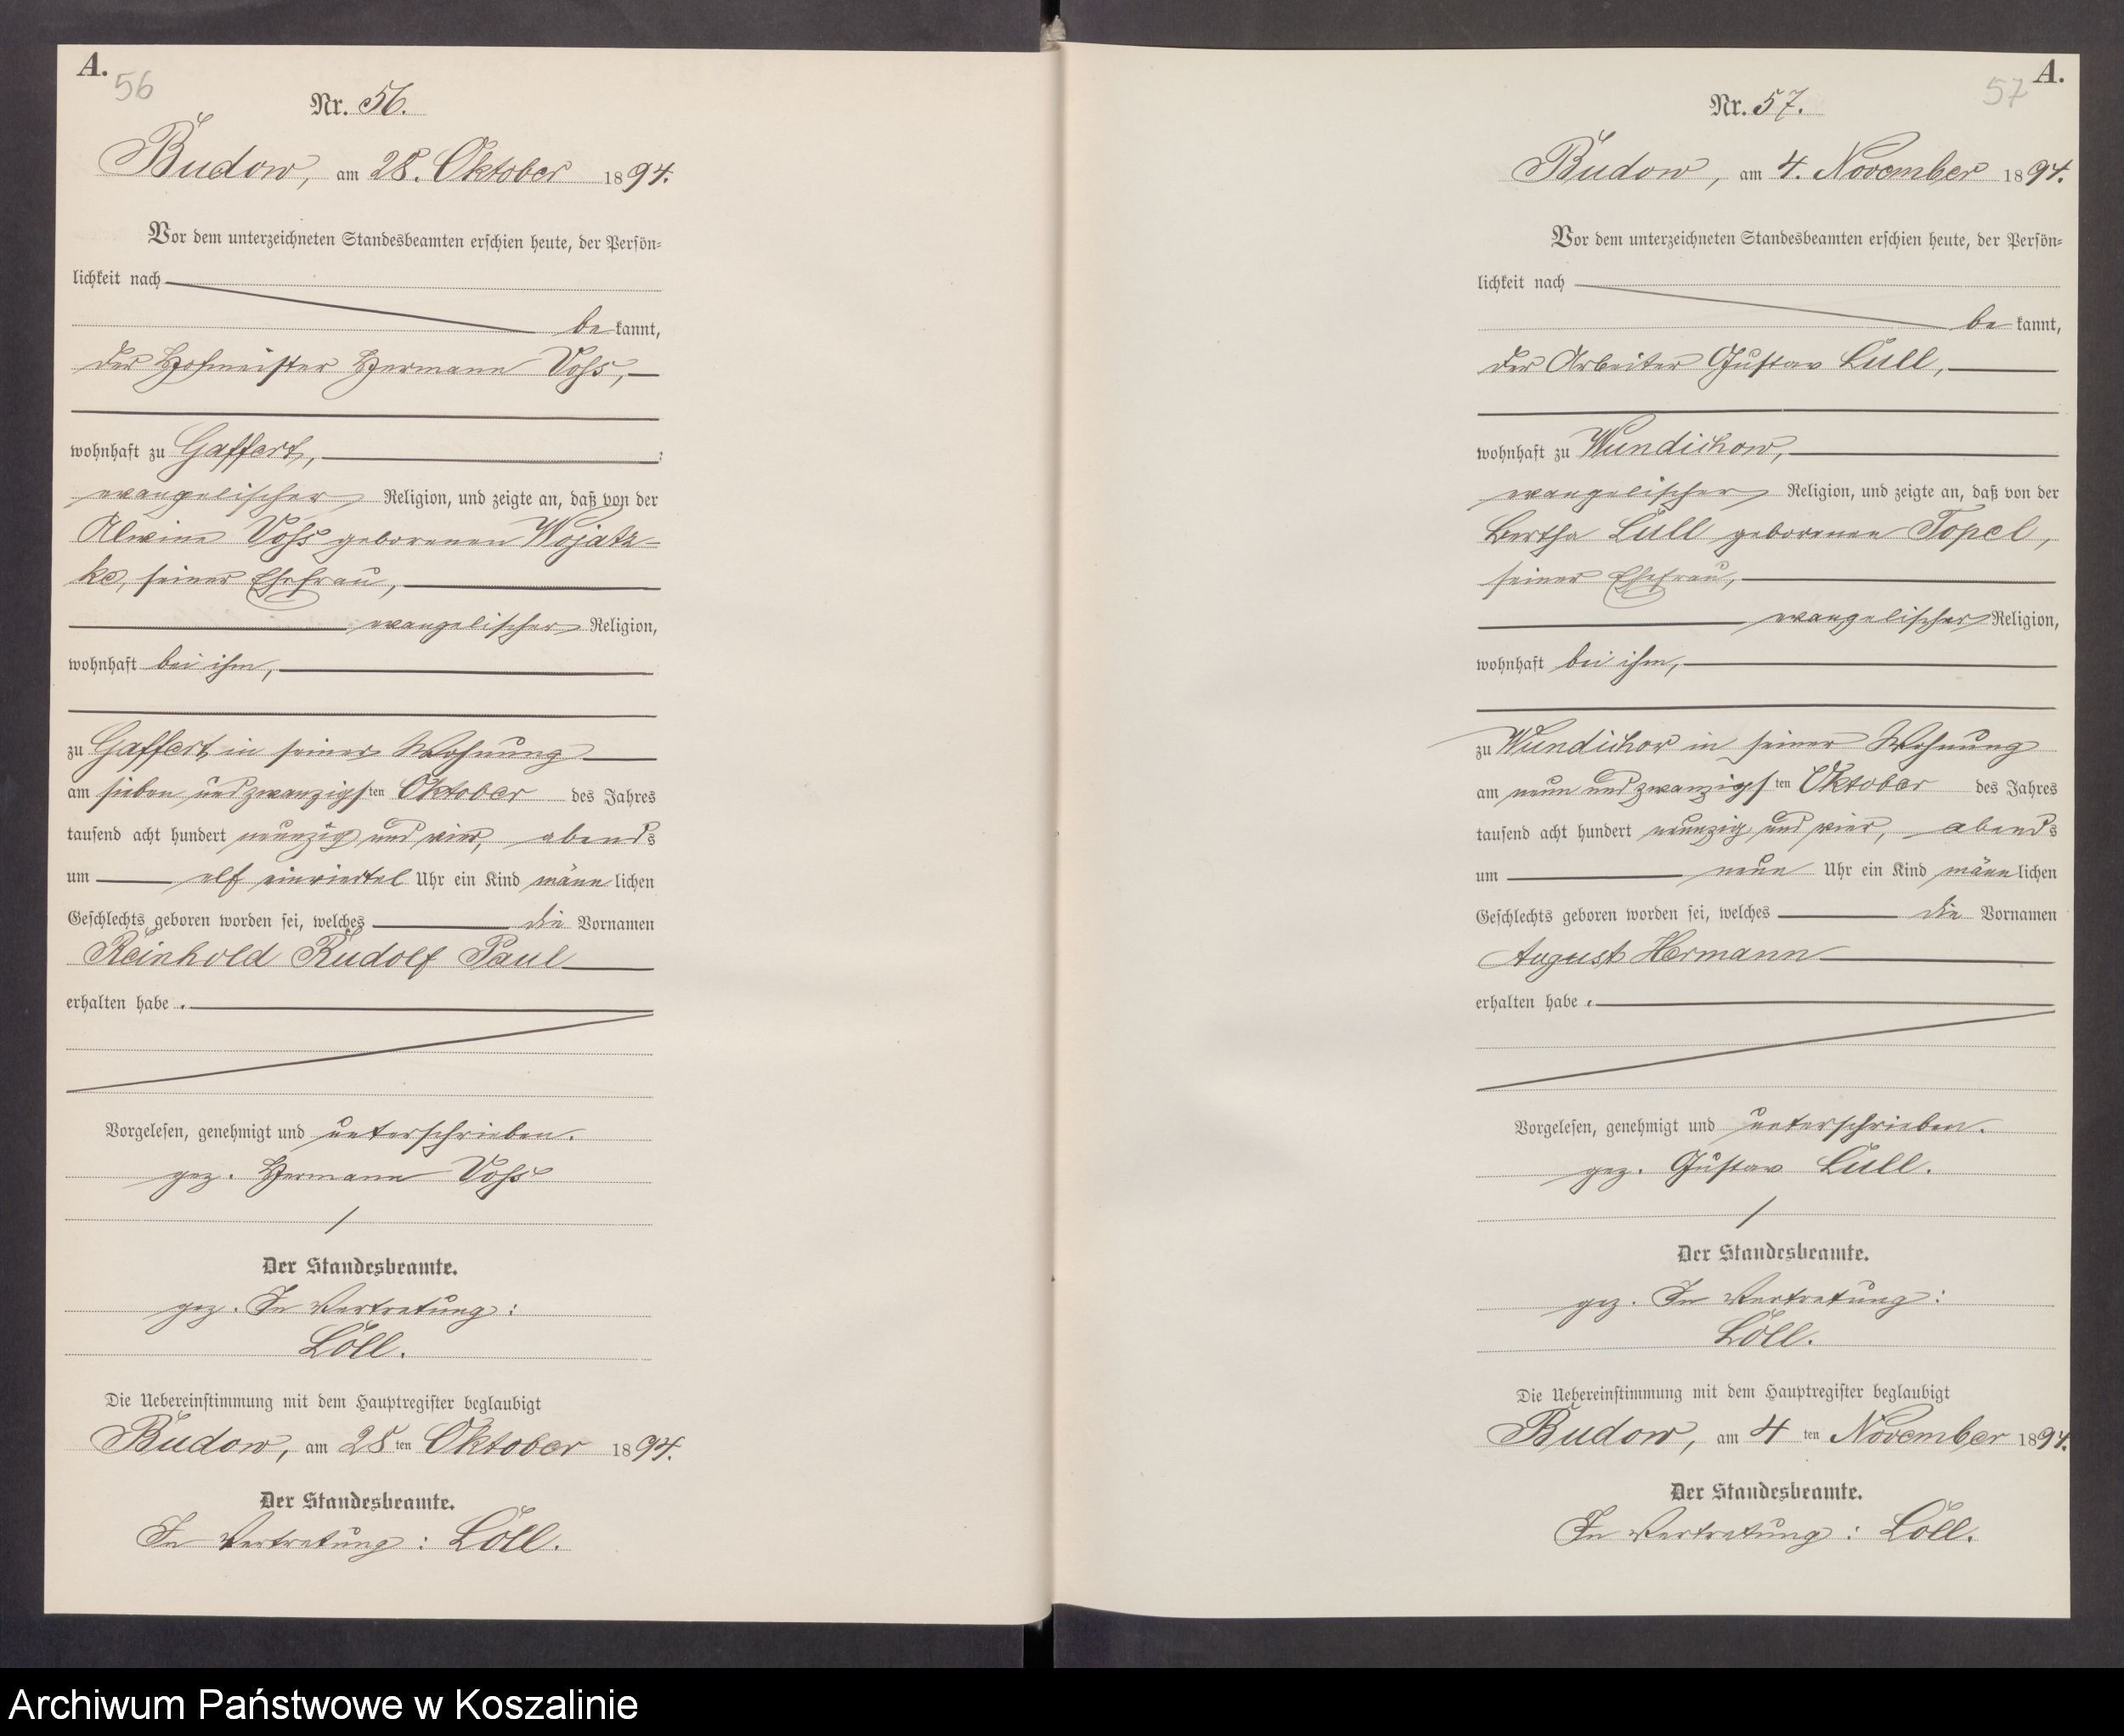 A.
56
Nr. 56.
Budow, am 28. Oktober 1894.
Vor dem unterzeichneten Standesbeamten erschien heute, der Persön-
lichkeit nach
be kannt,
der Hofmeister Hermann Voß,
wohnhaft zu Gaffert,
evangelischer Religion, und zeigte an, daß von der
Alwine Voß geborenen Wojatz-
ke, seiner Ehefrau,
evangelischer Religion,
wohnhaft bei ihm,
zu Gaffert in seiner Wohnung
am sieben und zwanzigsten Oktober des Jahres
tausend acht hundert neunzig und vier, abends
um elf einviertel Uhr ein Kind männlichen
Geschlechts geboren worden sei, welches die Vornamen
Reinhold Rudolf Paul
erhalten habe.
Vorgelesen, genehmigt und unterschrieben.
gez. Hermann Voß
Der Standesbeamte.
gez. In Vertretung:
Löll.
Die Uebereinstimmung mit dem Hauptregister beglaubigt
Budow, am 28ten Oktober 1894.
Der Standesbeamte.
In Vertretung: Löll.
A.
57
Nr. 57.
Budow, am 4. November 1894.
Vor dem unterzeichneten Standesbeamten erschien heute, der Persön-
lichkeit nach
be kannt,
der Arbeiter Gustav Lull,
wohnhaft zu Wundichow,
evangelischer Religion, und zeigte an, daß von der
Bertha Lull geborenen Topel,
seiner Ehefrau,
evangelischer Religion,
wohnhaft bei ihm,
zu Wundichow in seiner Wohnung
am neun und zwanzigsten Oktober des Jahres
tausend acht hundert neunzig und vier, abends
um neun Uhr ein Kind männlichen
Geschlechts geboren worden sei, welches die Vornamen
August Hermann
erhalten habe.
Vorgelesen, genehmigt und unterschrieben.
gez. Gustav Lull.
Der Standesbeamte.
gez. In Vertretung:
Löll.
Die Uebereinstimmung mit dem Hauptregister beglaubigt
Budow, am 4ten November 1894.
Der Standesbeamte.
In Vertretung: Löll.
Archiwum Państwowe w Koszalinie